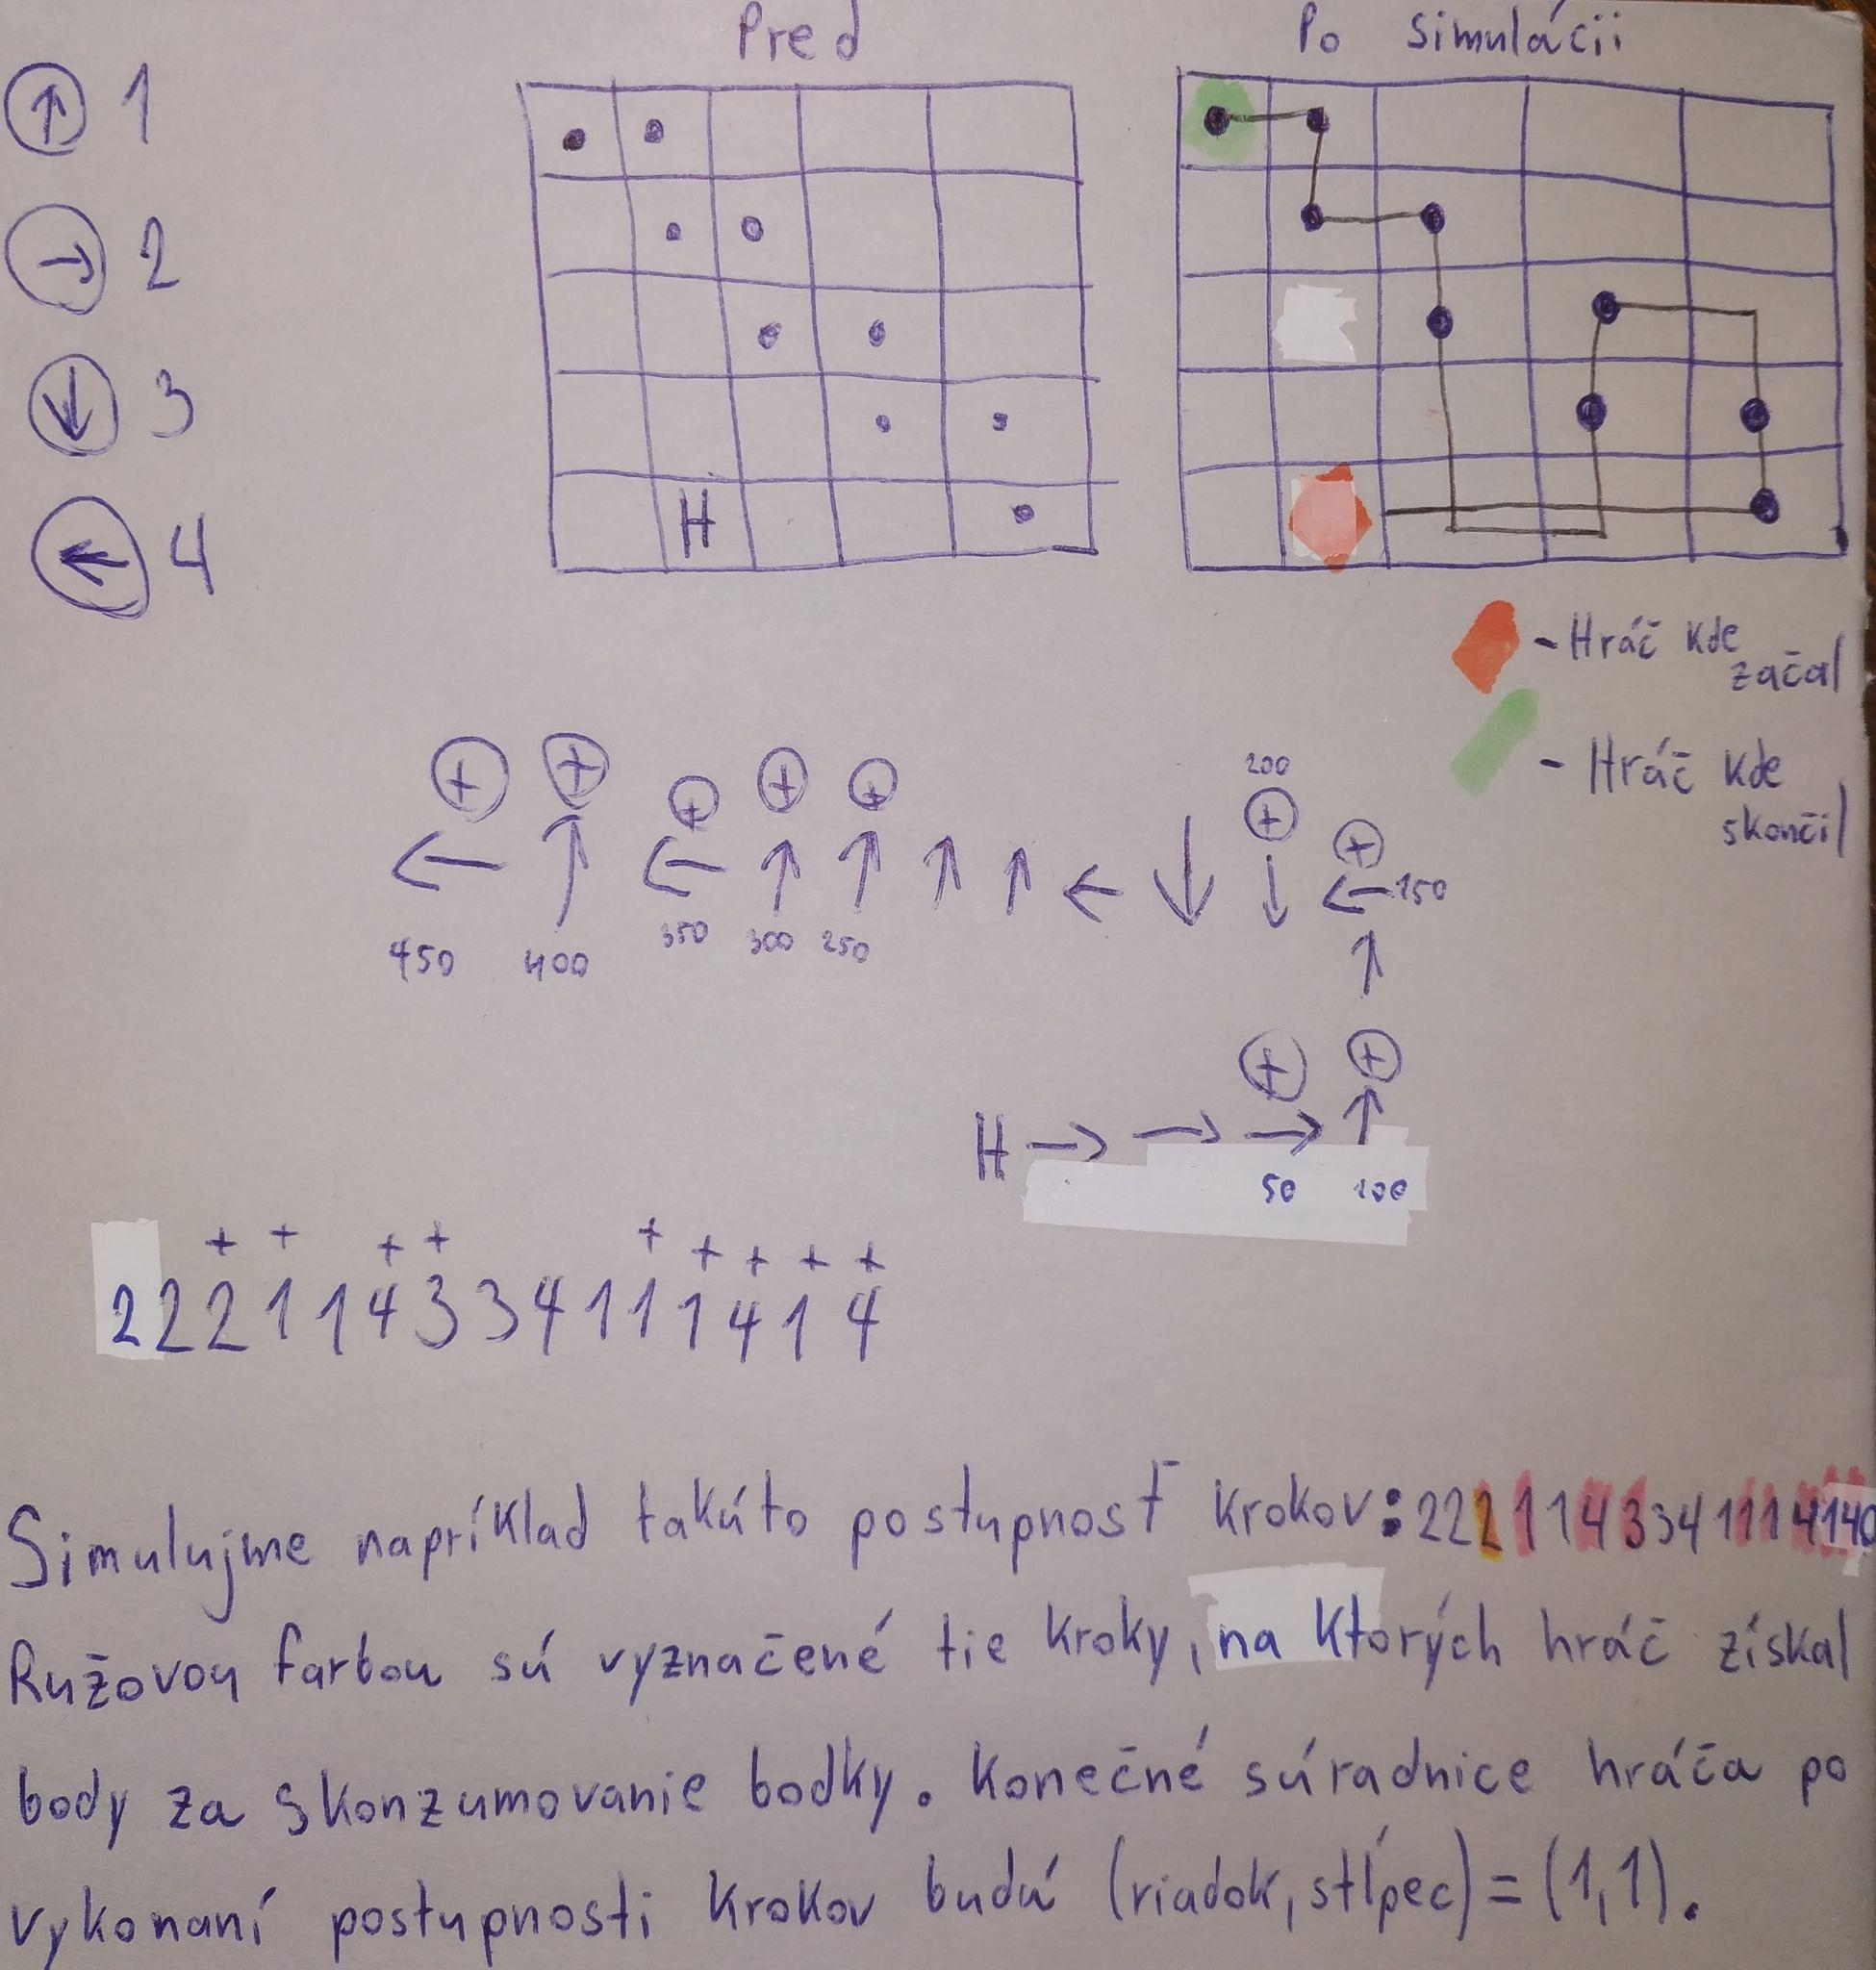 Pred
Po simulácii
↑ 1
→ 2
↓ 3
← 4
H
- Hráč kde začal
- Hráč kde skončil
+ + + + + 200 + +
← ↑ ← ↑ ↑ ↑ ↑ ← ↓ ↓ ← 150
450 400 350 300 250
↑
+ +
H → → → ↑
50 100
+ + + + + + + + +
2 2 2 1 1 4 3 3 4 1 1 1 4 1 4
Simulujme napríklad takúto postupnosť krokov: 2221143341114140
Ružovou farbou sú vyznačené tie kroky, na ktorých hráč získal
body za skonzumovanie bodky. Konečné súradnice hráča po
vykonaní postupnosti krokov budú (riadok, stĺpec) = (1,1).